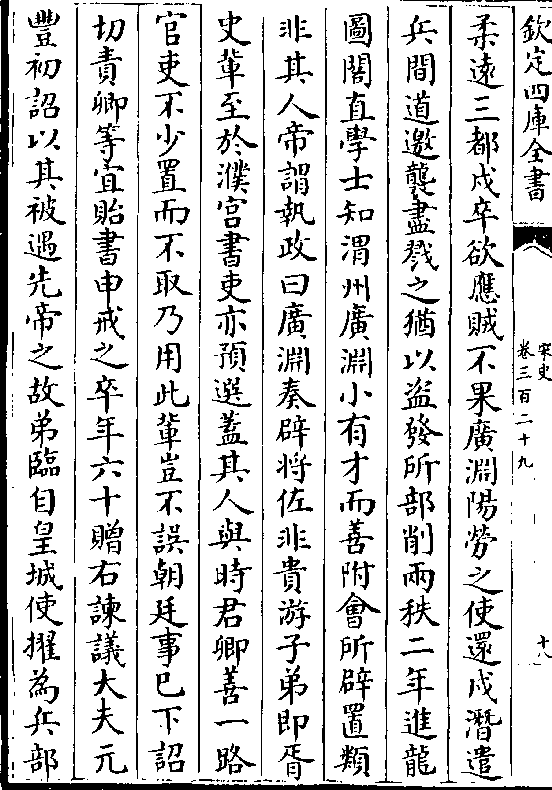 欽定四庫全書
宋史
卷三百二十九
十八
柔遠三都戍卒欲應賊不果廣淵陽勞之使還戍潛遣
兵間道邀襲盡戮之猶以盜發所部削兩秩二年進龍
圖閣直學士知渭州廣淵小有才而善附會所辟置類
非其人帝謂執政曰廣淵奏辟將佐非貴游子弟即胥
史輩至於濮宮書吏亦預選蓋其人與時君卿善一路
官吏不少置而不取乃用此輩豈不誤朝廷事已下詔
切責卿等宜貽書申戒之卒年六十贈右諫議大夫元
豐初詔以其被遇先帝之故弟臨自皇城使擢為兵部